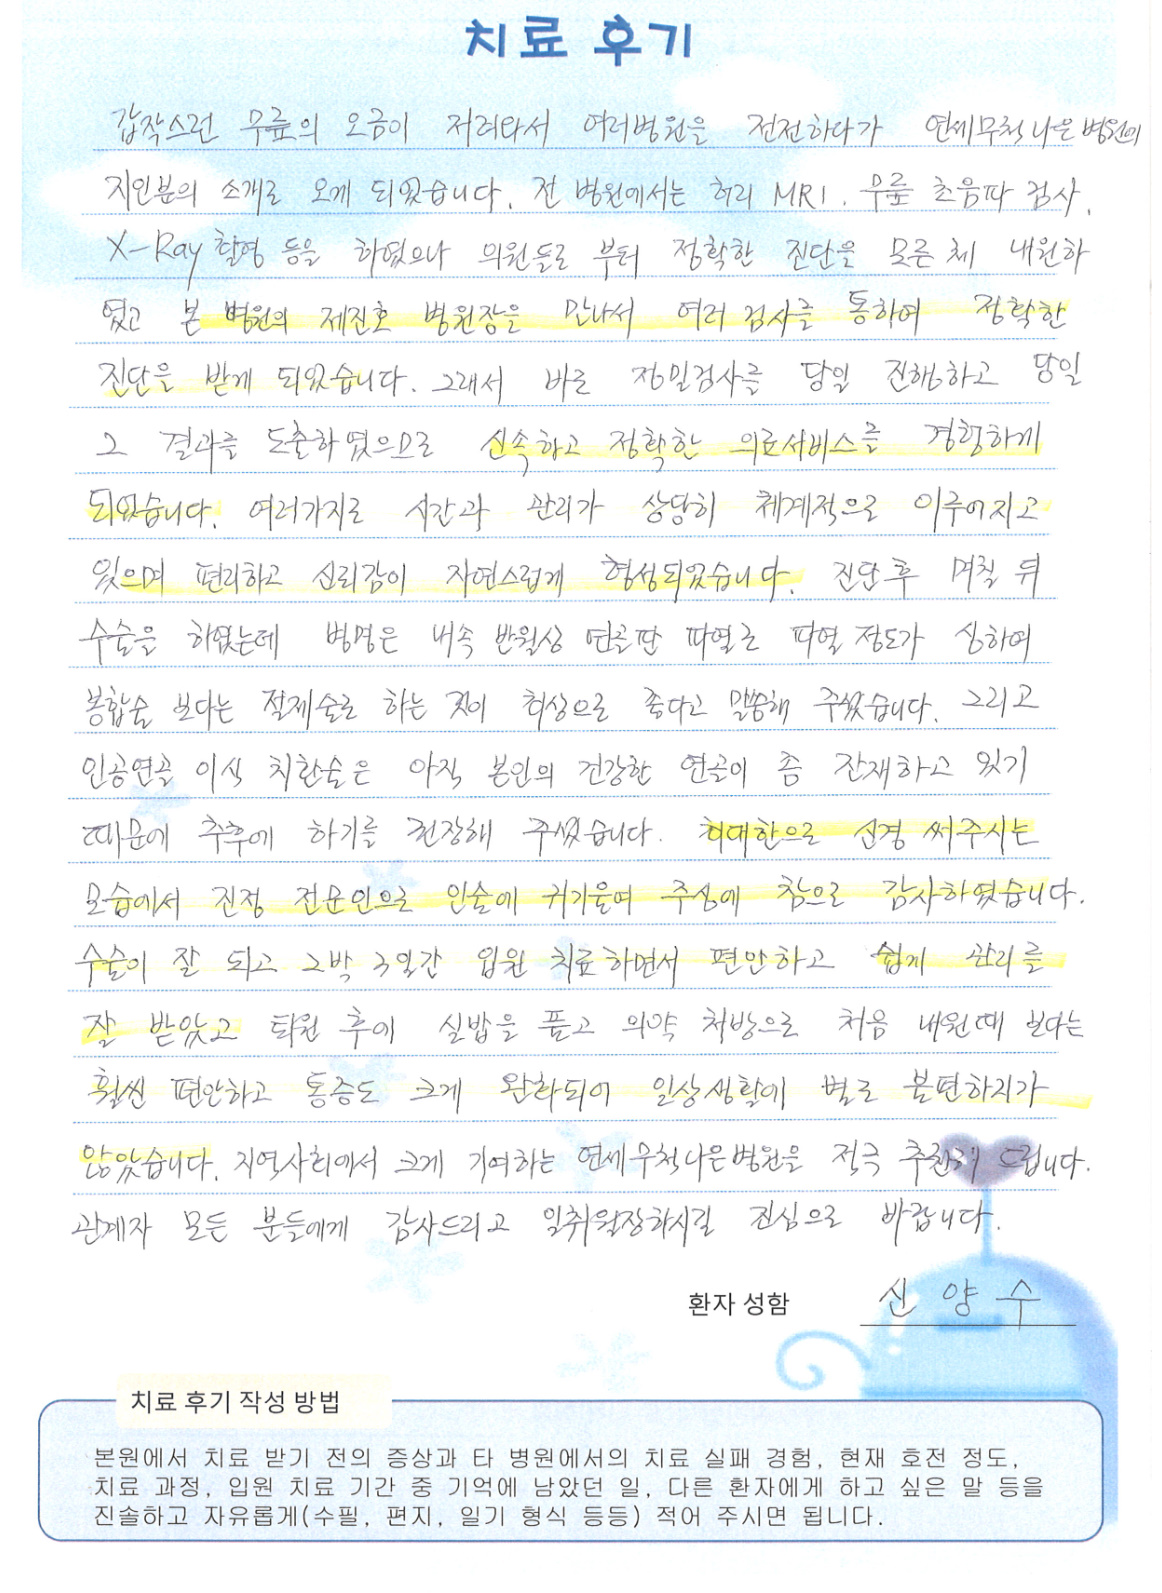 치료 후기
갑작스런 무릎의 오금이 저려와서 여러병원을 전전하다가 연세무척나은병원의
지인분의 소개로 오게 되었습니다. 전 병원에서는 허리 MRI. 무릎 초음파 검사.
X-Ray 촬영 등을 하였으나 의원들로 부터 정확한 진단을 모른 체 내원하
였고 본 병원의 제진호 병원장을 만나서 여러 검사를 통하여 정확한
진단을 받게 되었습니다. 그래서 바로 정밀검사를 당일 진행하고 당일
그 결과를 도출하였으므로 신속하고 정확한 의료서비스를 경험하게
되었습니다. 여러가지로 시간과 관리가 상당히 체계적으로 이루어지고
있으며 편리하고 신뢰감이 자연스럽게 형성되었습니다. 진단 후 며칠 뒤
수술을 하였는데 병명은 내측 반월상 연골판 파열로 파열 정도가 심하여
봉합술 보다는 절제술로 하는 것이 최상으로 좋다고 말씀해 주셨습니다. 그리고
인공연골 이식 치환술은 아직 본인의 건강한 연골이 좀 잔재하고 있기
때문에 추후에 하기를 권장해 주셨습니다. 최대한으로 신경 써주시는
모습에서 진정 전문인으로 인술에 귀기울여 주심에 참으로 감사하였습니다.
수술이 잘 되고 2박 3일간 입원 치료하면서 편안하고 쉽게 관리를
잘 받았고 퇴원 후에 실밥을 풀고 의약 처방으로 처음 내원때 보다는
훨씬 편안하고 통증도 크게 완화되어 일상생활에 별로 불편하지가
않았습니다. 지역사회에서 크게 기여하는 연세무척나은병원을 적극 추천해 드립니다.
관계자 모든 분들에게 감사드리고 일취월장하시길 진심으로 바랍니다.
환자 성함 신양수
치료 후기 작성 방법
본원에서 치료 받기 전의 증상과 타 병원에서의 치료 실패 경험, 현재 호전 정도,
치료 과정, 입원 치료 기간 중 기억에 남았던 일, 다른 환자에게 하고 싶은 말 등을
진솔하고 자유롭게(수필, 편지, 일기 형식 등등) 적어 주시면 됩니다.